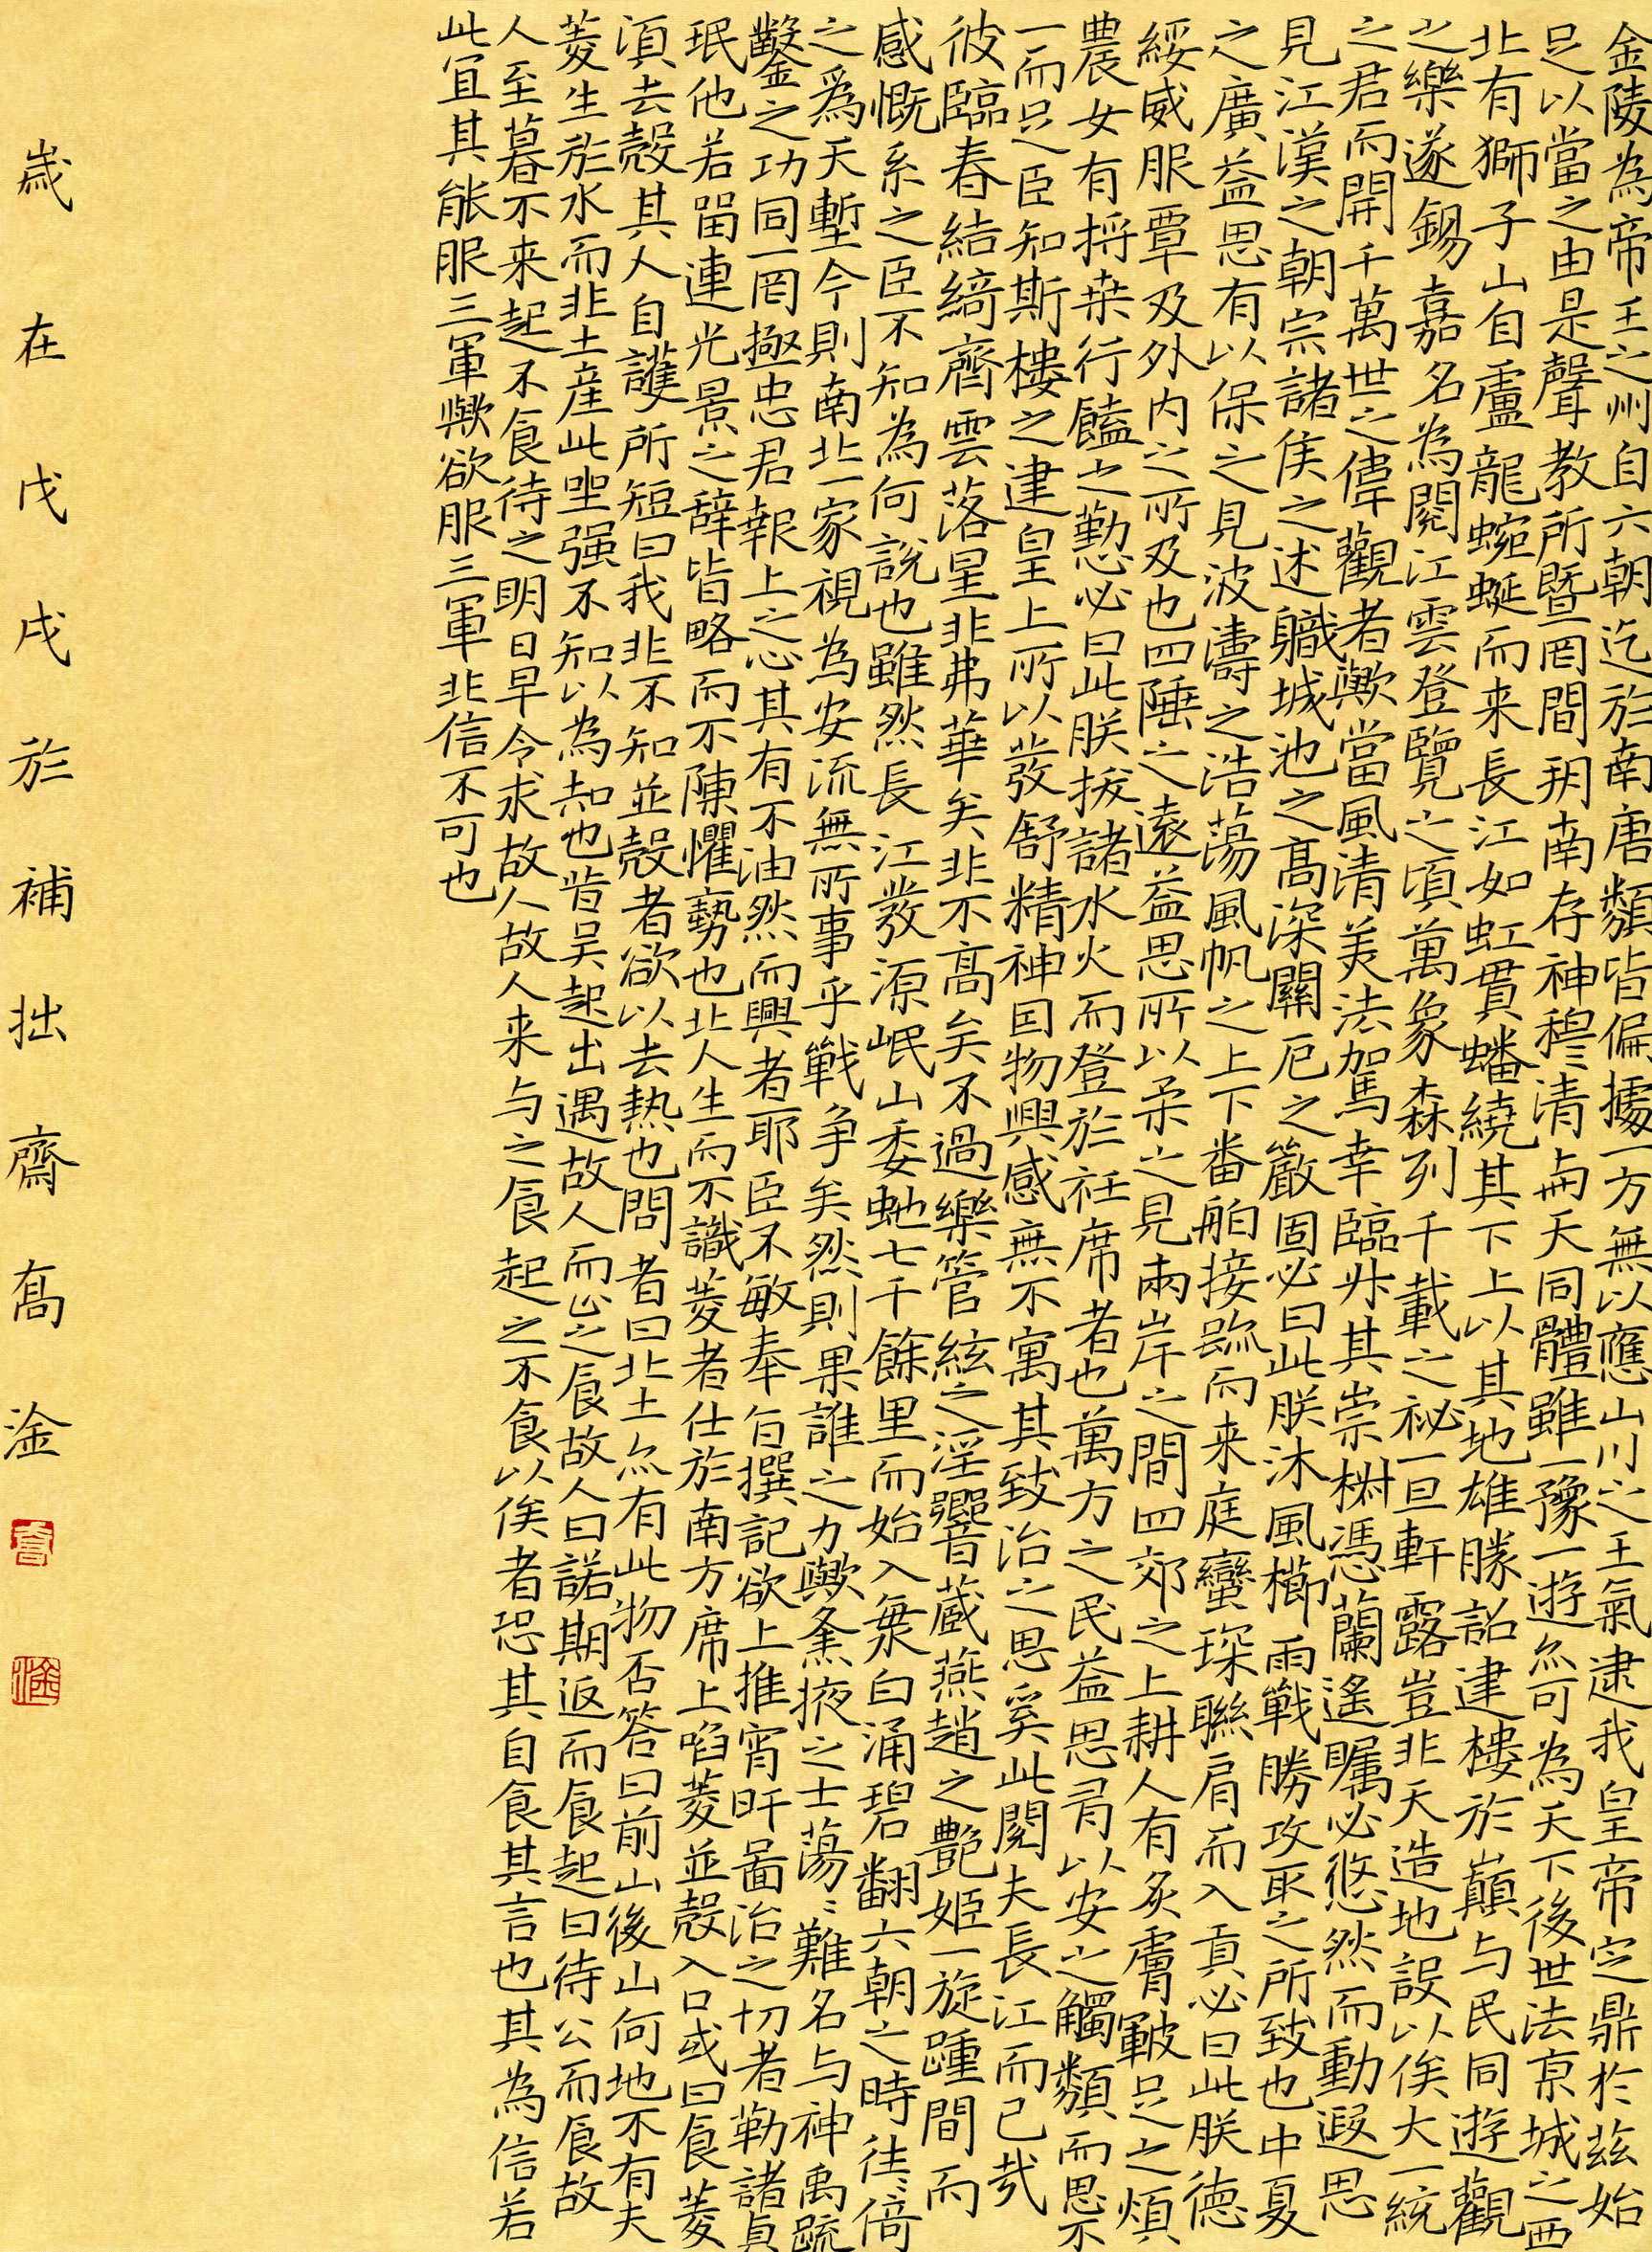 金陵為帝王之州自六朝迄於南唐類皆偏據一方無以應山川之王氣逮我皇帝定鼎於茲始
足以當之由是聲教所暨罔間朔南存神穆〻清與天同體雖一豫一遊亦可為天下後世法京城之西
北有獅子山自盧龍蜿蜒而来長江如虹貫蟠繞其下上以其地雄勝詔建樓於巔与民同遊觀
之樂遂錫嘉名為閱江雲登覽之頃萬象森列千載之祕一旦軒露豈非天造地設以俟大一統
之君而開千萬世之偉觀者歟當風清美法駕幸臨升其崇樹憑蘭遙矚必悠然而動遐思
見江漢之朝宗諸侯之述職城池之高深關阨之嚴固必曰此朕沐風櫛雨戰勝攻取之所致也中夏
之廣益思有以保之見波濤之浩蕩風帆之上下番舶接跡而来庭蠻琛聯肩而入貢必曰此朕德
綏威服覃及外内之所及也四陲之遠益思所以柔之見兩岸之間四郊之上耕人有炙膚皸足之煩
農女有捋桒行饁之勤必曰此朕拔諸水火而登於衽席者也萬方之民益思有以安之觸類而思不
一而足臣知斯樓之建皇上所以發舒精神因物興感無不寓其致治之思奚此閱夫長江而已㢤
彼臨春結綺齊雲落星非弗華矣非不高矣不過樂管絃之淫響蔵燕趙之艷姬一旋踵間而
感慨系之臣不知為何說也雖然長江發源岷山委虵七千餘里而始入海白涌碧翻六朝之時往〻倚
之為天塹今則南北一家視為安流無所事乎戰争矣然則果誰之力歟逢掖之士蕩〻難名与神禹疏
鑿之功同一罔極忠君報上之心其有不油然而興者耶臣不敏奉旨撰記欲上推宵旰圖治之切者勒諸貞
珉他若畱連光景之辞皆略而不陳懼褻也北人生而不識菱者仕於南方席上啗菱並殼入口或曰食菱
湏去殼其人自護所短曰我非不知並殼者欲以去熱也問者曰北土亦有此物否答曰前山後山何地不有夫
菱生於水而非土產此坐强不知以為知也昔吴起出遇故人而止之食故人曰諾期返而食起曰待公而食故
人至暮不来起不食待之明日早令求故人故人来与之食起之不食以俟者恐其自食其言也其為信若
此宜其能服三軍歟欲服三軍非信不可也
歲在戊戌於補拙齋髙淦